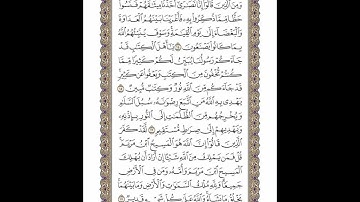 وَمِنَ ٱلَّذِينَ قَالُوٓا۟ إِنَّا نَصَٰرَىٰٓ أَخَذْنَا مِيثَٰقَهُمْ فَنَسُوا۟
حَظًّا مِّمَّا ذُكِّرُوا۟ بِهِۦ فَأَغْرَيْنَا بَيْنَهُمُ ٱلْعَدَاوَةَ
وَٱلْبَغْضَآءَ إِلَىٰ يَوْمِ ٱلْقِيَٰمَةِ وَسَوْفَ يُنَبِّئُهُمُ ٱللَّهُ
بِمَا كَانُوا۟ يَصْنَعُونَ ١٤ يَٰٓأَهْلَ ٱلْكِتَٰبِ قَدْ
جَآءَكُمْ رَسُولُنَا يُبَيِّنُ لَكُمْ كَثِيرًا مِّمَّا
كُنتُمْ تُخْفُونَ مِنَ ٱلْكِتَٰبِ وَيَعْفُوا۟ عَن كَثِيرٍ
قَدْ جَآءَكُم مِّنَ ٱللَّهِ نُورٌ وَكِتَٰبٌ مُّبِينٌ ١٥
يَهْدِى بِهِ ٱللَّهُ مَنِ ٱتَّبَعَ رِضْوَٰنَهُۥ سُبُلَ ٱلسَّلَٰمِ
وَيُخْرِجُهُم مِّنَ ٱلظُّلُمَٰتِ إِلَى ٱلنُّورِ بِإِذْنِهِۦ
وَيَهْدِيهِمْ إِلَىٰ صِرَٰطٍ مُّسْتَقِيمٍ ١٦ لَّقَدْ كَفَرَ
ٱلَّذِينَ قَالُوٓا۟ إِنَّ ٱللَّهَ هُوَ ٱلْمَسِيحُ ٱبْنُ مَرْيَمَ
قُلْ فَمَن يَمْلِكُ مِنَ ٱللَّهِ شَيْـًٔا إِنْ أَرَادَ أَن يُهْلِكَ
ٱلْمَسِيحَ ٱبْنَ مَرْيَمَ وَأُمَّهُۥ وَمَن فِى ٱلْأَرْضِ
جَمِيعًا وَلِلَّهِ مُلْكُ ٱلسَّمَٰوَٰتِ وَٱلْأَرْضِ وَمَا بَيْنَهُمَا
يَخْلُقُ مَا يَشَآءُ وَٱللَّهُ عَلَىٰ كُلِّ شَىْءٍ قَدِيرٌ ١٧